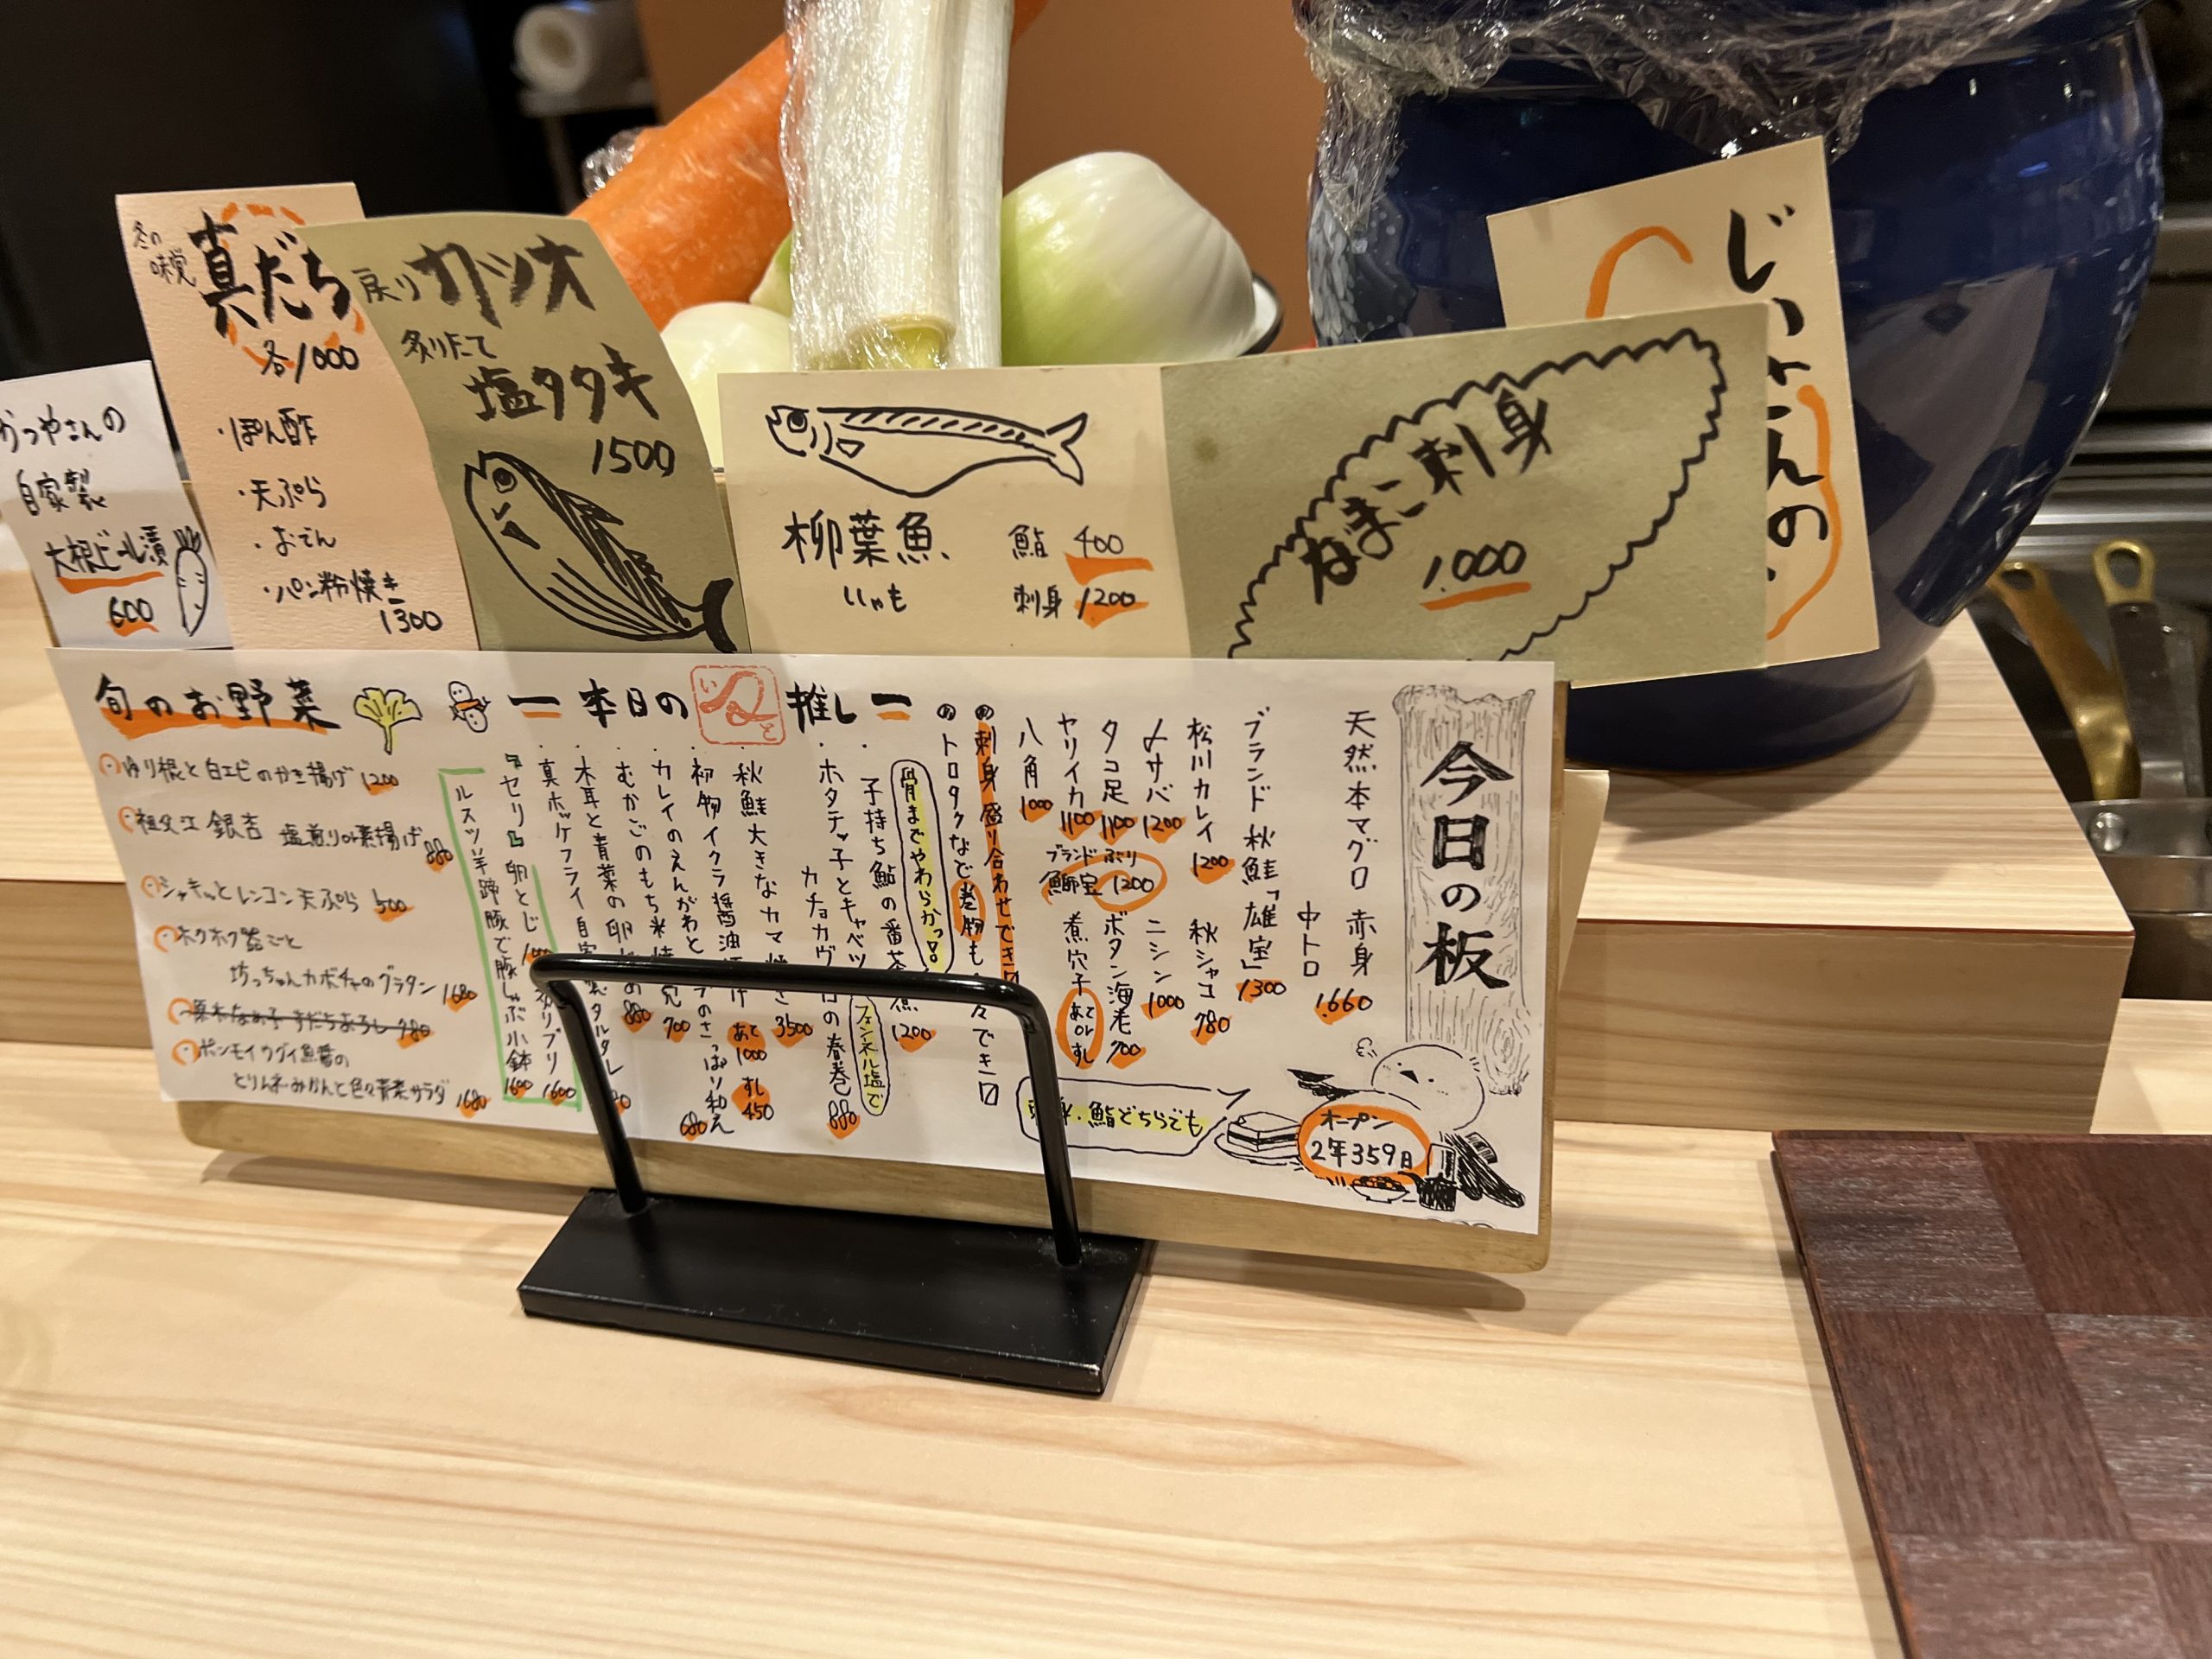 冬の
味覚
真だち
各1000
・ぽん酢
・天ぷら
・おでん
・パン粉焼き
1300
戻りカツオ
炙りたて
塩タタキ
1500
自家製
大根ビール漬
600
柳葉魚
ししゃも
鮨 400
刺身 1200
なまこ刺身
1,000
今日の板
天然本マグロ 赤身
中トロ
1,660
ブランド 秋鮭「雄宝」1300
松川カレイ 1200
秋シャコ 780
〆サバ 1200
ニシン 1000
タコ足 1100
ボタン海老 700
ヤリイカ 1100
ブランド ぶり
鰤宝 1200
煮穴子 あてorすし
八角 1000
鮨どちらでも
オープン
2年359日
一本日の
推し一
骨までやわらかっ
・子持ち鮎の番茶煮 1200
・ホタテッ子とキャベツ
の春巻 880
フェンネル塩で
秋鮭大きなカマ
3500
・初物イクラ醤油
あて
1000
すし
450
・カレイのえんがわと
のさっぱり和え 680
・むかごのもち米
700
・木耳と青菜の卵
880
・真ホッケフライ 自家製タルタル
「セリ」
卵とじ
1600
ルスツ羊蹄豚で豚しゃぶ小鉢 1600
旬のお野菜
ゆり根と白エビのかき揚げ 1200
祖父江 銀杏 塩煎りor素揚げ 880
シャキッとレンコン天ぷら 500
ホクホク器ごと
坊っちゃんカボチャのグラタン 1680
原木なめ子 すだちおろし 780
ポンモイ ウグイ魚醤の
とりんネみかんと色々青菜サラダ 1680